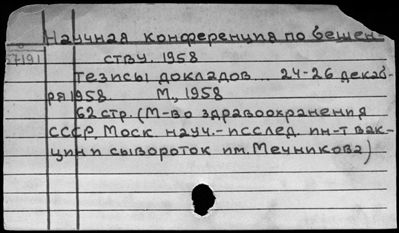 Научная конференция по бешен-
57191
ству. 1958
тезисы докладов... 24-26 декаб-
ря 1958 М., 1958
62 стр. (М-во здравоохранения
СССР. Моск. науч.-исслед. ин-т вак-
цин и сывороток им. Мечникова)